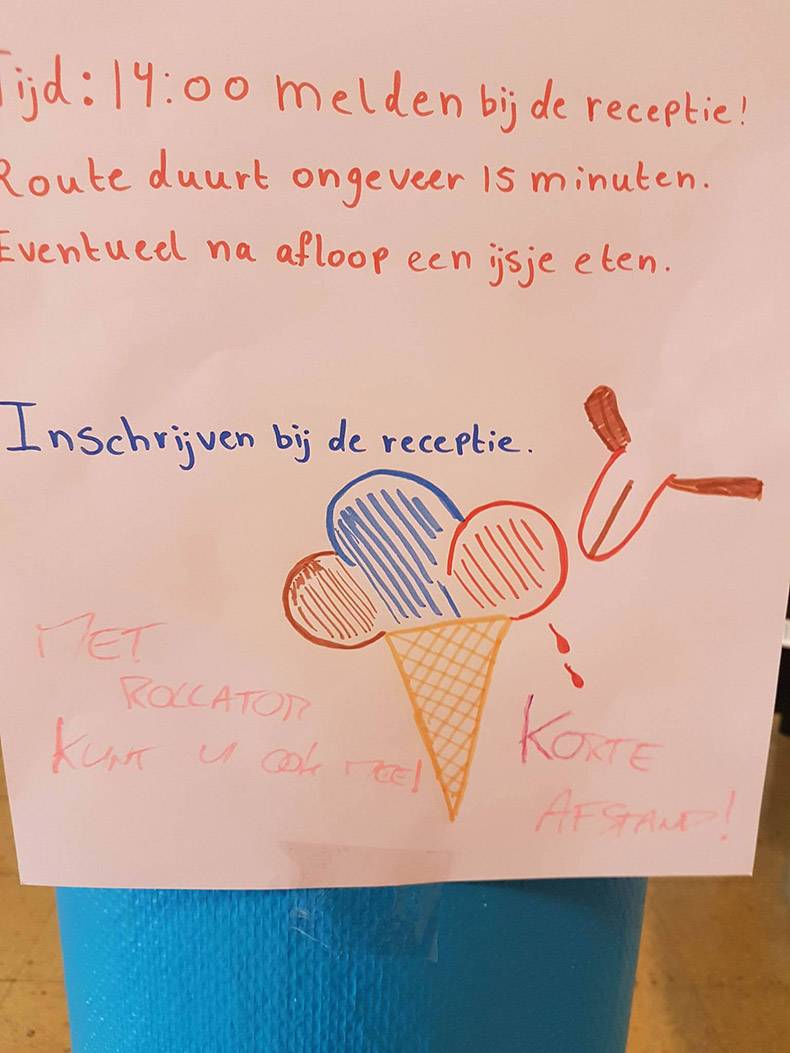 Tijd: 14:00 melden bij de receptie!
Route duurt ongeveer 15 minuten.
Eventueel na afloop een ijsje eten.
Inschrijven bij de receptie.
MET
ROLLATOR
KUNT U OOK MEE!
KORTE
AFSTAND!